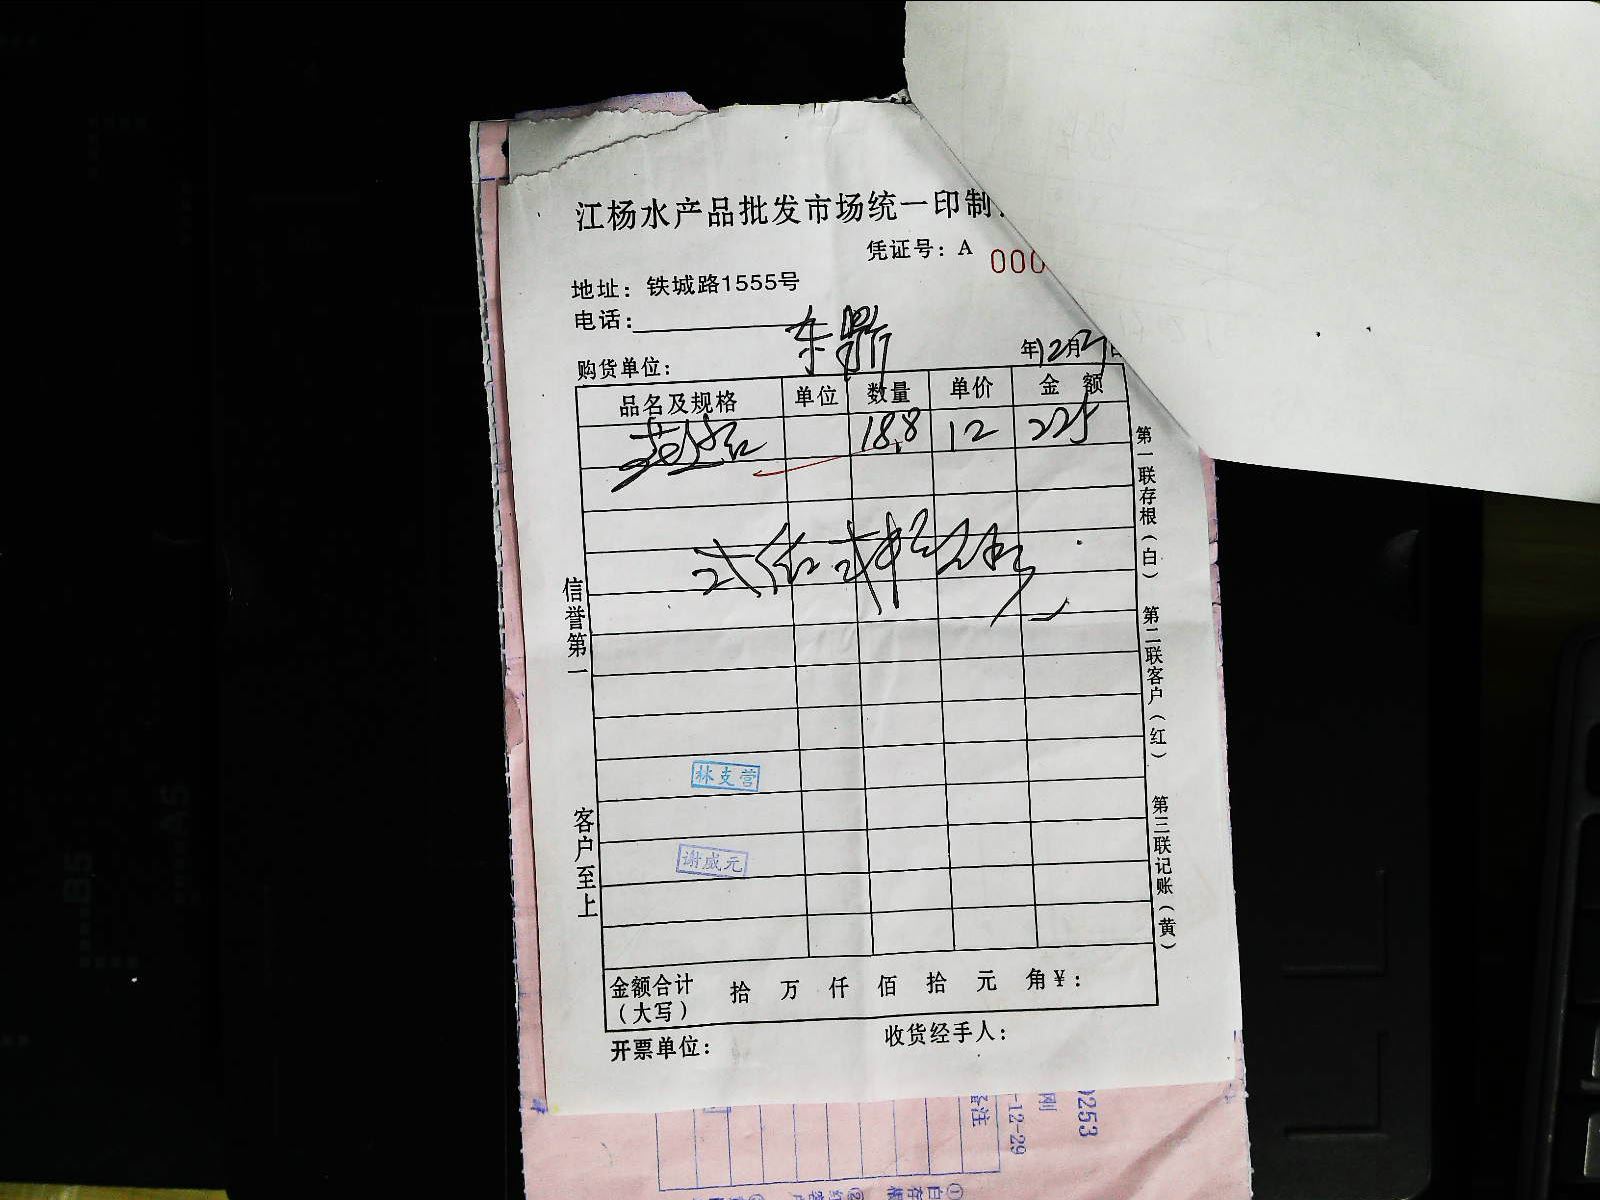 江杨水产品批发市场统一印制
凭证号：A 000
地址：铁城路1555号
电话：
购货单位： 东鼎 年12月
品名及规格 单位 数量 单价 金 额
18.8 12 225
信誉第一
客户至上
第一联存根（白） 第二联客户（红） 第三联记账（黄）
林支营
谢威元
金额合计（大写） 拾 万 仟 佰 拾 元 角 ¥：
开票单位： 收货经手人：
0253
刚
-12-29
备注